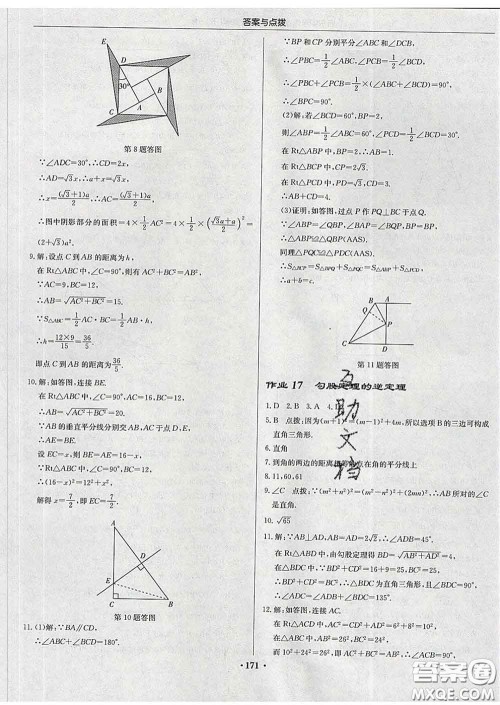 答案与点拨
E
D
30°
B
C
A
第8题答图
∵∠ADC=30°,∴CD=2x,
∴AD=√3x,∴a+x=√3x,
∴x=(√3+1)a/2,∴AC=(√3+1)a/2.
∴图中阴影部分的面积=4×1/2·AC²=4×1/2×
(2+√3)a².
9.解:设点C到AB的距离为h.
在Rt△ABC中,∠C=90°,则有AC²+BC²=AB²,
∴AB=√AC²+BC²=15.
∵S△ABC=1/2AC·BC=1/2AB·h,
∴h=12×9/15=36/5.
即点C到AB的距离为36/5.
10.解:如答图,连接BE.
在Rt△ABC中,∠C=90°,
∵AB的垂直平分线分别交AB,AC于点D,E,
∴AE=BE.
设EC=x,则BE=AE=16-x,
∴(16-x)²=12²+x²,
解得x=7/2,即EC=7/2.
A
D
E
C
B
第10题答图
11.(1)解:∵BA∥CD,
∴∠ABC+∠BCD=180°.
∵BP和CP分别平分∠ABC和∠DCB,
∴∠PBC=1/2∠ABC,∠PCB=1/2∠BCD,
∴∠PBC+∠PCB=1/2×(∠ABC+∠BCD)=90°,
∴∠BPC=90°.
(2)解:若∠BCD=60°,BP=2,
则∠ABP=1/2∠ABC=60°,∠PCD=30°.
在Rt△ABP中,BP=2,AB=1.
在Rt△BCP中,CP=2√3.
在Rt△PCD中,PD=√3,CD=3.
∴AB+CD=4.
(3)证明:如答图,过点P作PQ⊥BC于点Q.
∵∠ABP=∠QBP,∠BAP=∠BQP,BP=BP,
∴△ABP≌△QBP(AAS).
同理△PQC≌△PDC(AAS),
∴S△BCP=S△BPQ+S△PQC=S△ABP+S△PCD,
∴a+b=c.
B
A
Q
P
C
第11题答图
作业17 勾股定理的逆定理
1.D 2.B 3.A 4.
5.B 点拨:因为(m+1)²=(m-1)²+4m,所以选项B的三边可构成
直角三角形.
6.直角
7.到角的两边的距离相等的点在角的平分线上
8.11,60,61
9.∠C 点拨:∵(m²+n²)²=(m²-n²)²+(2mn)²,∴AB所对的∠C
是直角.
10.√65
11.解:∵AB⊥AD,AB=AD=2√2,∴∠ADB=45°.
在Rt△ABD中,由勾股定理得BD=√AB²+AD²=4.
在△BDC中,∵BD²+CD²=16+9=25,BC²=25,
∴BD²+CD²=BC²,∴△BDC为直角三角形,且∠BDC=90°,
∴∠ADC=∠ADB+∠BDC=135°.
12.解:如答图,连接AC.
在Rt△ACD中,∵AC²=AD²+CD²=6²+8²=10²,∴AC=10.
在△ABC中,∵AB²=26²,BC²=24²,AC²=10²,
而10²+24²=26²,即AC²+BC²=AB²,∴∠ACB=90°,
互
助
文
档
·171·
答案圈
MXQE.COM